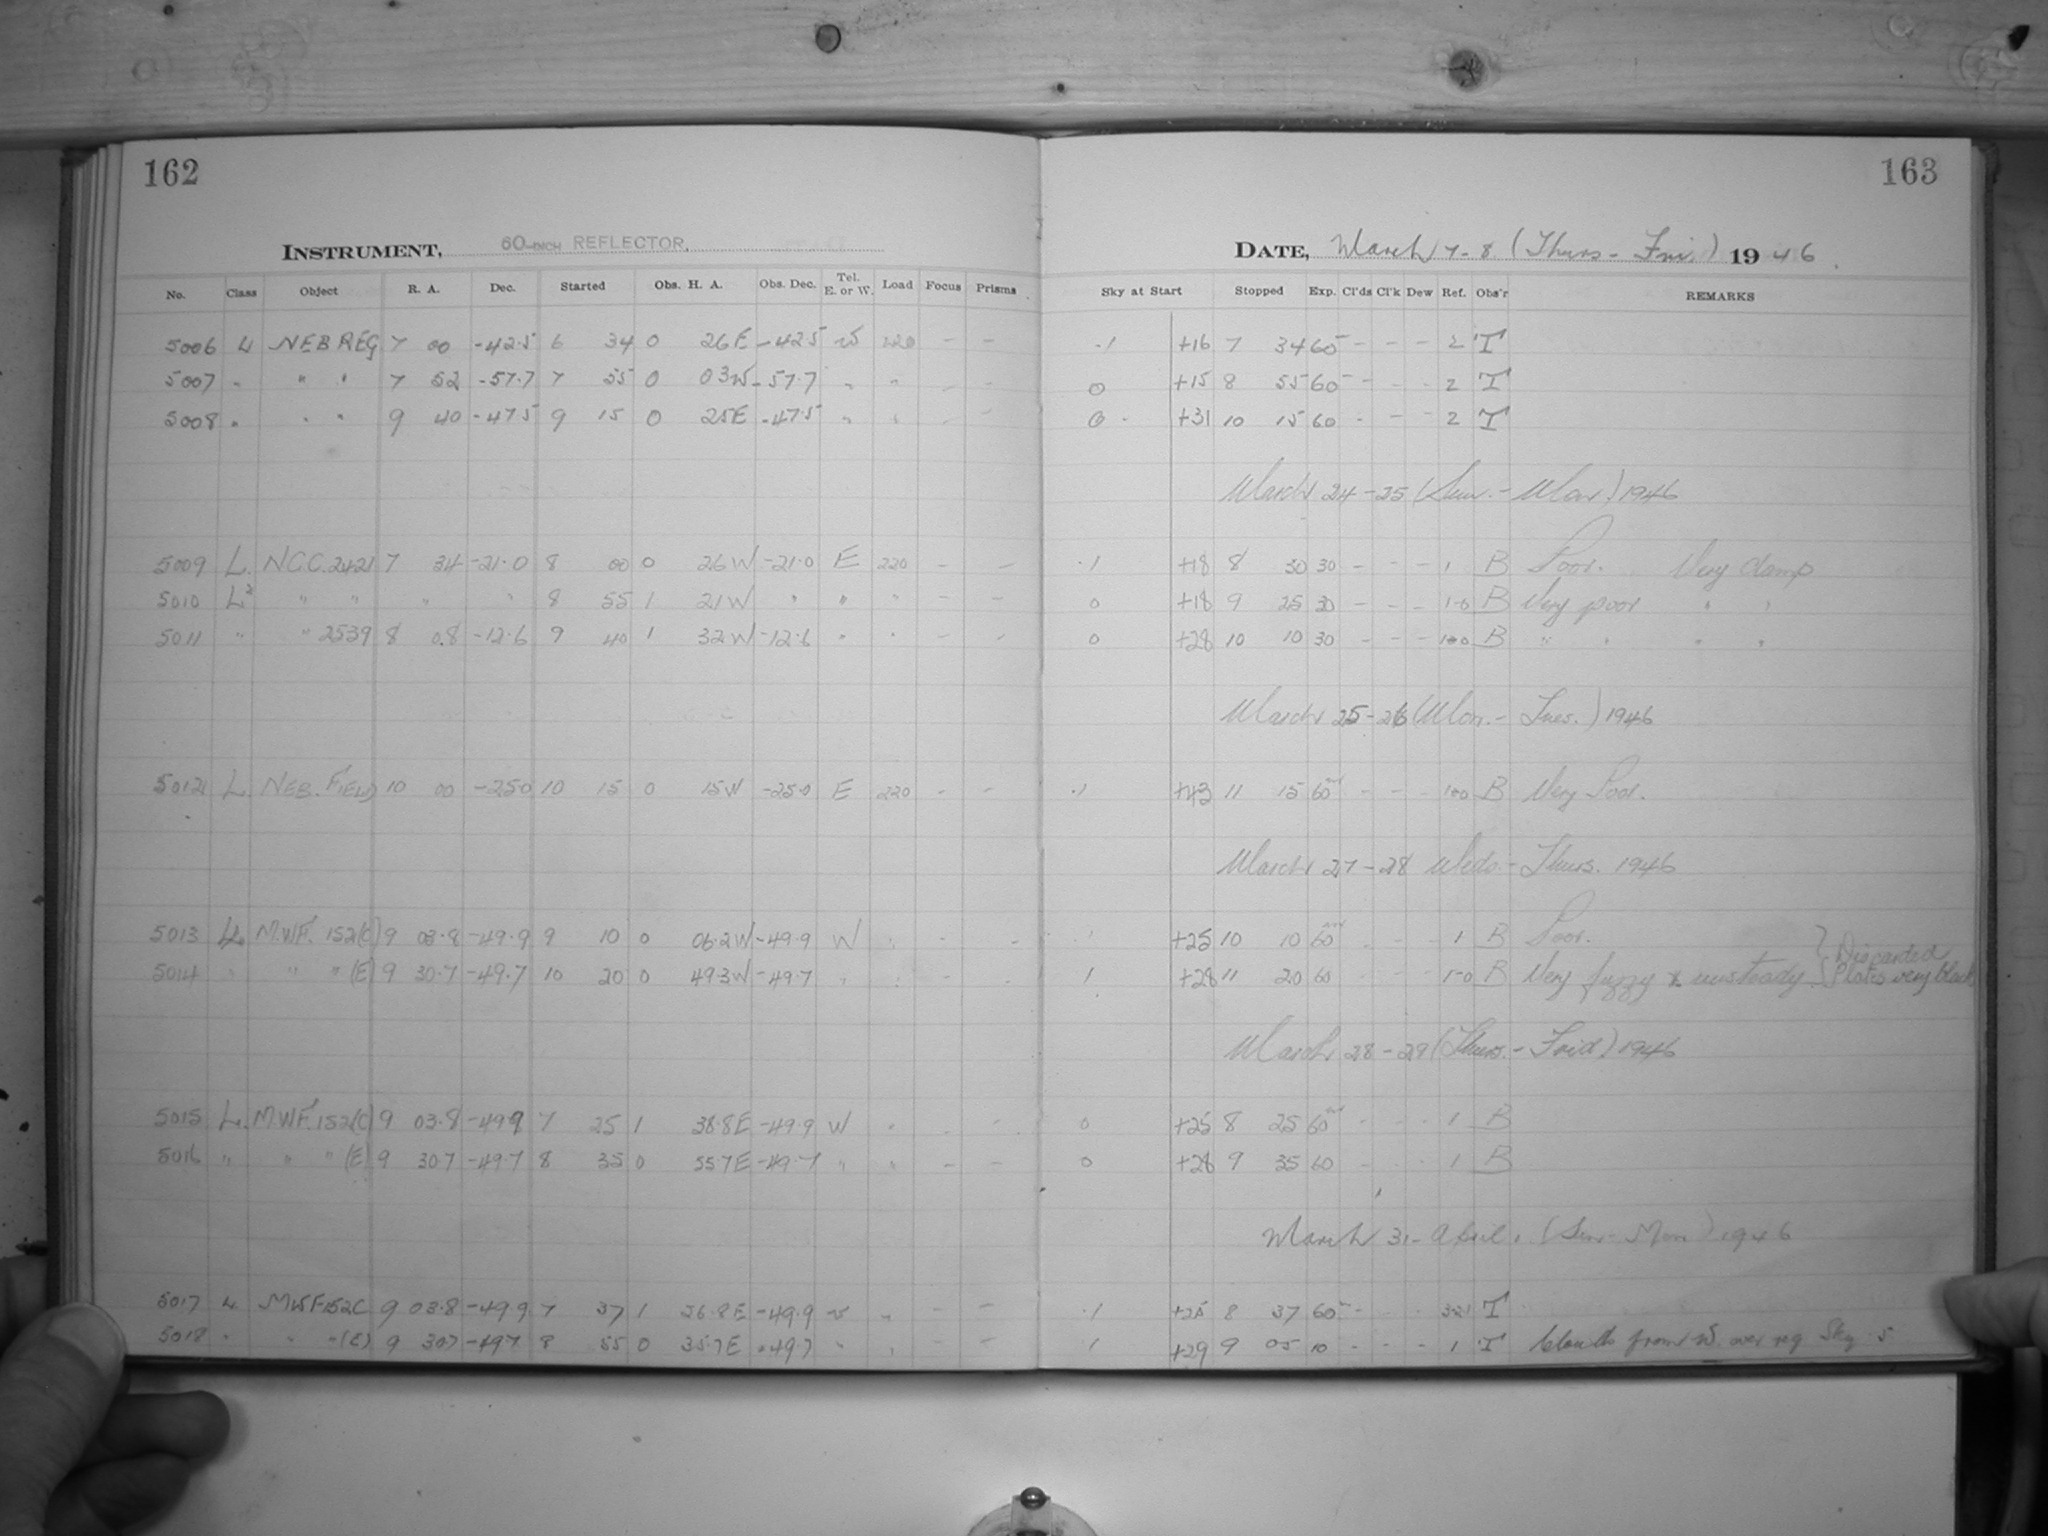 162
163
INSTRUMENT, 60-INCH REFLECTOR.
DATE, March 7-8 (Thurs - Fri.) 1946.
No. Class Object R. A. Dec. Started Obs. H. A. Obs. Dec. Tel. E. or W. Load Focus Prisms Sky at Start Stopped Exp. Cl'ds Cl'k Dew Ref. Obs'r REMARKS
5006 L NEB REG 7 00 -42.5 6 34 0 26E -42.5 W 220 - - .1 +16 7 34 60 - - - 2 T
5007 " " " 7 52 -57.7 7 55 0 03W -57.7 " " - - 0 +15 8 55 60 - - - 2 T
5008 " " " 9 40 -47.5 9 15 0 25E -47.5 " " - - 0 +31 10 15 60 - - - 2 T
March 24-25 (Sun. - Mon.) 1946
5009 L. NGC. 2421 7 34 -21.0 8 00 0 26W -21.0 E 220 - - .1 +18 8 30 30 - - - 1 B Poor. Very damp
5010 L² " " " " 8 55 1 21W " " " - - 0 +18 9 25 30 - - - 1-0 B Very poor " "
5011 " " 2539 8 0.8 -12.6 9 40 1 32W -12.6 " " - - 0 +28 10 10 30 - - - 1-0 B " " " "
March 25-26 (Mon. - Tues.) 1946
5012 L. NEB. FIELD 10 00 -25.0 10 15 0 15W -25.0 E 220 - - .1 +43 11 15 60 - - - 1-0 B Very Poor.
March 27-28 Weds. - Thurs. 1946
5013 L. M.W.F. 152(C) 9 03.8 -49.9 9 10 0 06.2W -49.9 W " - - +25 10 10 60 - - - 1 B Poor.
5014 " " " (E) 9 30.7 -49.7 10 20 0 49.3W -49.7 " " - - 1 +28 11 20 60 - - - 1-0 B Very fuzzy & unsteady. } Discarded Plates very black
March 28-29 (Thurs. - Frid) 1946
5015 L. M.W.F. 152(C) 9 03.8 -49.9 7 25 1 38.8E -49.9 W " - - 0 +25 8 25 60 - - - 1 B
5016 " " " (E) 9 30.7 -49.7 8 35 0 55.7E -49.7 " " - - 0 +28 9 35 60 - - - 1 B
March 31 - April 1 (Sun - Mon) 1946
5017 L. MWF 152C 9 03.8 -49.9 7 37 1 26.8E -49.9 W " - - .1 +25 8 37 60 - - - T
5018 " " " (E) 9 30.7 -49.7 8 55 0 35.7E -49.7 " " - - 1 +29 9 05 10 - - - 1 T Clouds from W over reg Sky 5